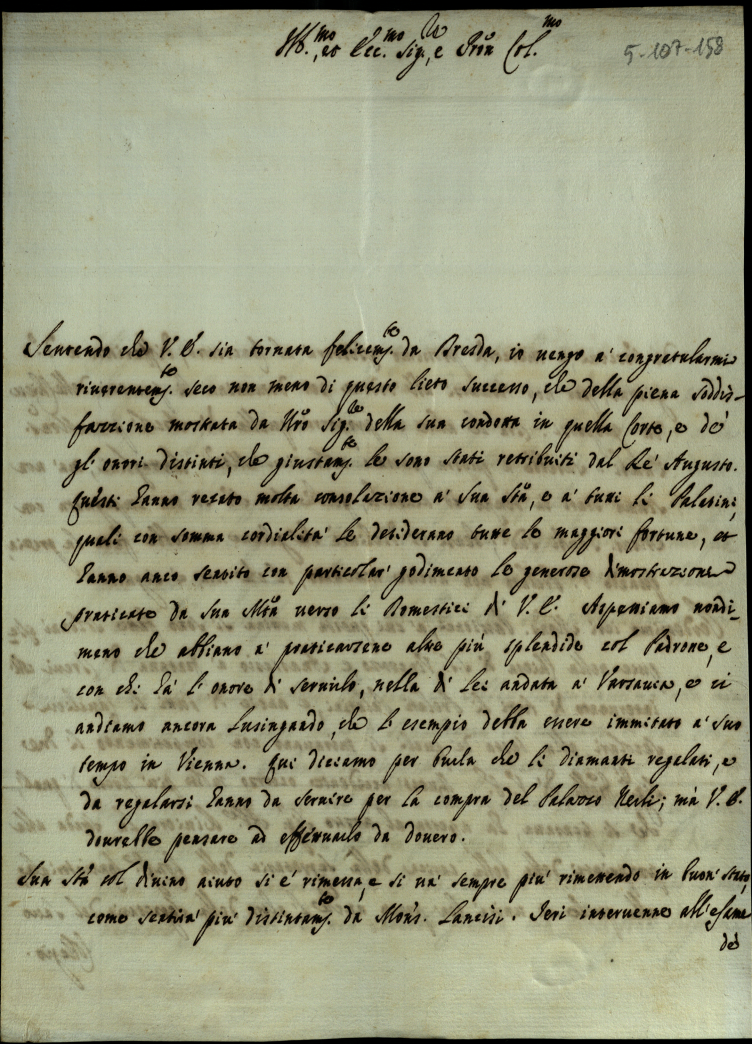 Ill.mo, et Ecc.mo Sig.re, e Pron Col.mo
5-107-158
Sentendo che V. E. sia tornata felicem.te da Dresda, io vengo a' congratularmi
riverentem.te seco non meno di questo lieto successo, che della piena soddis-
fazzione mostrata da Nro Sig.re della sua condotta in quella Corte, e de'
gl' onori distinti, che giustam.te le sono stati retribuiti dal Re' Augusto.
Questi hanno recato molta consolazione a' Sua Stà, e a' tutti li Palatini,
quali con somma cordialita' le desiderano tutte le maggiori fortune, et
hanno anco sentito con particolar' godimento le generose dimostrazione
praticate da Sua Mtà verso li Domestici di V. E. Aspettiamo nondi-
meno che abbiano a' praticarsene altre più splendide col Padrone, e
con chi hà l' onore di servirlo, nella di Lei andata a' Varsavia, e ci
andiamo ancora lusingando, che l' esempio debba essere immitato a' suo
tempo in Vienna. Qui diciamo per burla che li diamanti regalati, e
da regalarsi hanno da servire per la compra del Palazzo Nerli; mà V. E.
dovrebbe pensare ad effettuarlo da dovero.
Sua Stà col divino aiuto si e' rimessa, e si va' sempre piu' rimettendo in buon' stato,
come sentira' piu' distintam.te da Mons. Lancisi. Ieri intervenne all' esame
de'